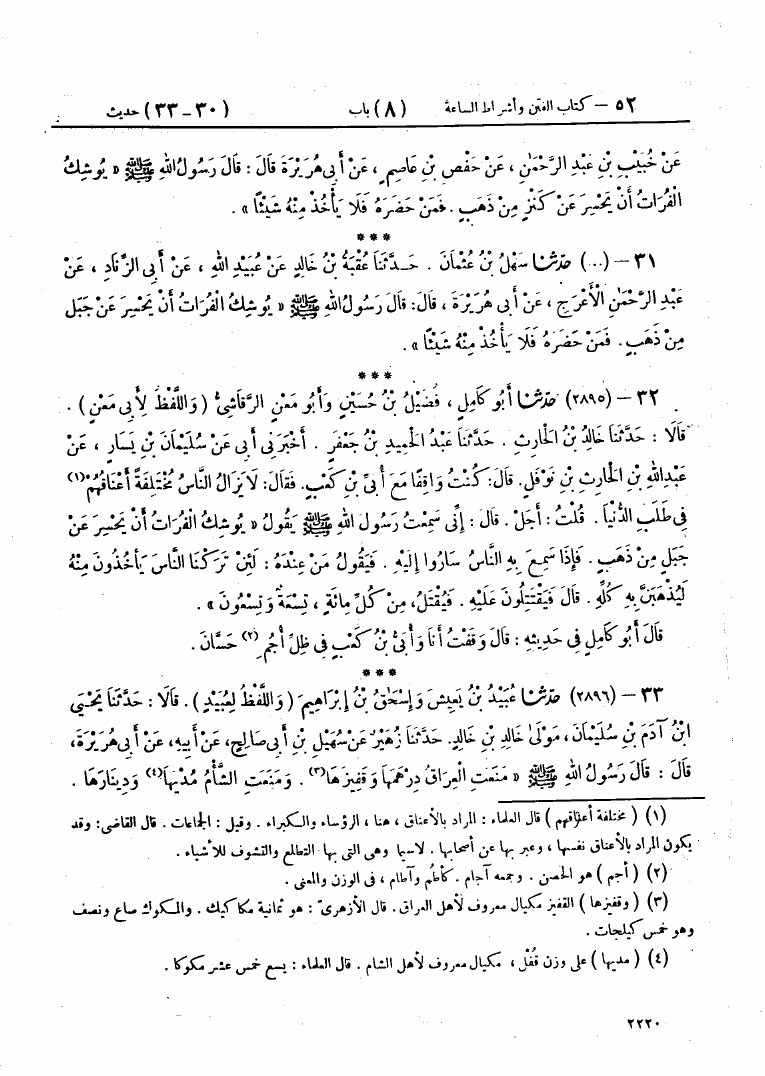 ٥٢ – كتاب الفتن وأشراط الساعة (٨) باب (٣٠ – ٣٣) حديث
عَنْ خُبَيْبِ بْنِ عَبْدِ الرَّحْمَٰنِ ، عَنْ حَفْصِ بْنِ عَاصِمٍ ، عَنْ أَبِي هُرَيْرَةَ قَالَ : قَالَ رَسُولُ اللهِ ﷺ « يُوشِكُ
الْفُرَاتُ أَنْ يَحْسِرَ عَنْ كَنْزٍ مِنْ ذَهَبٍ . فَمَنْ حَضَرَهُ فَلَا يَأْخُذْ مِنْهُ شَيْئًا » .
***
٣١ – (...) حَدَّثَنَا سَهْلُ بْنُ عُثْمَانَ . حَدَّثَنَا عُقْبَةُ بْنُ خَالِدٍ عَنْ عُبَيْدِ اللهِ ، عَنْ أَبِي الزِّنَادِ ، عَنْ
عَبْدِ الرَّحْمَٰنِ الْأَعْرَجِ ، عَنْ أَبِي هُرَيْرَةَ ، قَالَ : قَالَ رَسُولُ اللهِ ﷺ « يُوشِكُ الْفُرَاتُ أَنْ يَحْسِرَ عَنْ جَبَلٍ
مِنْ ذَهَبٍ . فَمَنْ حَضَرَهُ فَلَا يَأْخُذْ مِنْهُ شَيْئًا » .
***
٣٢ – (٢٨٩٥) حَدَّثَنَا أَبُو كَامِلٍ ، فُضَيْلُ بْنُ حُسَيْنٍ وَأَبُو مَعْنٍ الرَّقَاشِيُّ ( وَاللَّفْظُ لِأَبِي مَعْنٍ ) .
قَالَا : حَدَّثَنَا خَالِدُ بْنُ الْحَارِثِ . حَدَّثَنَا عَبْدُ الْحَمِيدِ بْنُ جَعْفَرٍ . أَخْبَرَنِي أَبِي عَنْ سُلَيْمَانَ بْنِ يَسَارٍ ، عَنْ
عَبْدِ اللهِ بْنِ الْحَارِثِ بْنِ نَوْفَلٍ . قَالَ : كُنْتُ وَاقِفًا مَعَ أُبَيِّ بْنِ كَعْبٍ . فَقَالَ : لَا يَزَالُ النَّاسُ مُخْتَلِفَةً أَعْنَاقُهُمْ (١)
فِي طَلَبِ الدُّنْيَا . قُلْتُ : أَجَلْ . قَالَ : إِنِّي سَمِعْتُ رَسُولَ اللهِ ﷺ يَقُولُ « يُوشِكُ الْفُرَاتُ أَنْ يَحْسِرَ عَنْ
جَبَلٍ مِنْ ذَهَبٍ . فَإِذَا سَمِعَ بِهِ النَّاسُ سَارُوا إِلَيْهِ . فَيَقُولُ مَنْ عِنْدَهُ : لَئِنْ تَرَكْنَا النَّاسَ يَأْخُذُونَ مِنْهُ
لَيُذْهَبَنَّ بِهِ كُلِّهِ . قَالَ فَيَقْتَتِلُونَ عَلَيْهِ . فَيُقْتَلُ ، مِنْ كُلِّ مِائَةٍ ، تِسْعَةٌ وَتِسْعُونَ » .
قَالَ أَبُو كَامِلٍ فِي حَدِيثِهِ : قَالَ وَقَفْتُ أَنَا وَأُبَيُّ بْنُ كَعْبٍ فِي ظِلِّ أُجُمِ (٢) حَسَّانَ .
***
٣٣ – (٢٨٩٦) حَدَّثَنَا عُبَيْدُ بْنُ يَعِيشَ وَإِسْحَٰقُ بْنُ إِبْرَاهِيمَ ( وَاللَّفْظُ لِعُبَيْدٍ ) . قَالَا : حَدَّثَنَا يَحْيَى
ابْنُ آدَمَ بْنِ سُلَيْمَانَ ، مَوْلَىٰ خَالِدِ بْنِ خَالِدٍ . حَدَّثَنَا زُهَيْرٌ عَنْ سُهَيْلِ بْنِ أَبِي صَالِحٍ ، عَنْ أَبِيهِ ، عَنْ أَبِي هُرَيْرَةَ ،
قَالَ : قَالَ رَسُولُ اللهِ ﷺ « مَنَعَتِ الْعِرَاقُ دِرْهَمَهَا وَقَفِيزَهَا (٣) . وَمَنَعَتِ الشَّأْمُ مُدْيَهَا (٤) وَدِينَارَهَا .
(١) ( مختلفة أعناقهم ) قال العلماء : المراد بالأعناق ، هنا ، الرؤساء والكبراء . وقيل : الجماعات . قال القاضي : وقد
يكون المراد بالأعناق نفسها ، وعبر بها عن أصحابها . لاسيما وهي التي بها التطلع والتشوف للأشياء .
(٢) ( أجم ) هو الحصن . وجمعه آجام . كأطم وآطام ، في الوزن والمعنى .
(٣) ( وقفيزها ) القفيز مكيال معروف لأهل العراق . قال الأزهري : هو ثمانية مكاكيك . والمكوك صاع ونصف
وهو خمس كيلجات .
(٤) ( مديها ) على وزن قُفْل ، مكيال معروف لأهل الشام . قال العلماء : يسع خمس عشر مكوكا .
٢٢٢٠